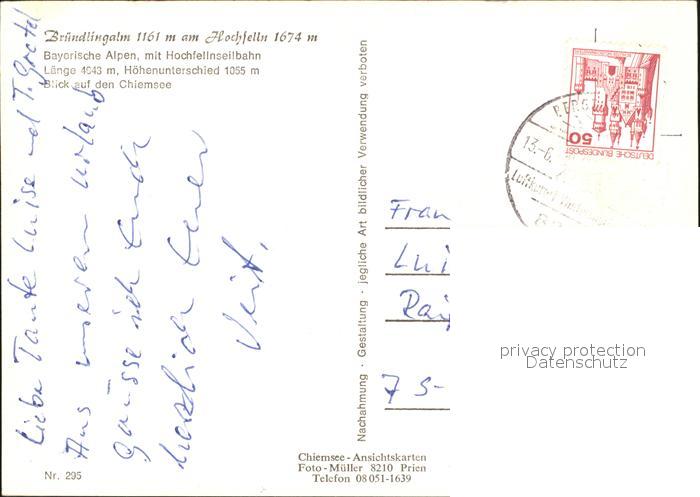 Bründlingalm 1161 m am Hochfelln 1674 m
Bayerische Alpen, mit Hochfellnseilbahn
Länge 4043 m, Höhenunterschied 1055 m
Blick auf den Chiemsee
Liebe Tante Luise und T. Gretel
Aus unserem Urlaub
grüsse ich Euch
herzlich Euer
Veit.
Nachahmung · Gestaltung · jegliche Art bildlicher Verwendung verboten
50
DEUTSCHE BUNDESPOST
BERG
13.-6.
Luftkurort
Fran
Lui
Rai
75-
privacy protection
Datenschutz
Chiemsee-Ansichtskarten
Foto-Müller 8210 Prien
Telefon 08051-1639
Nr. 295